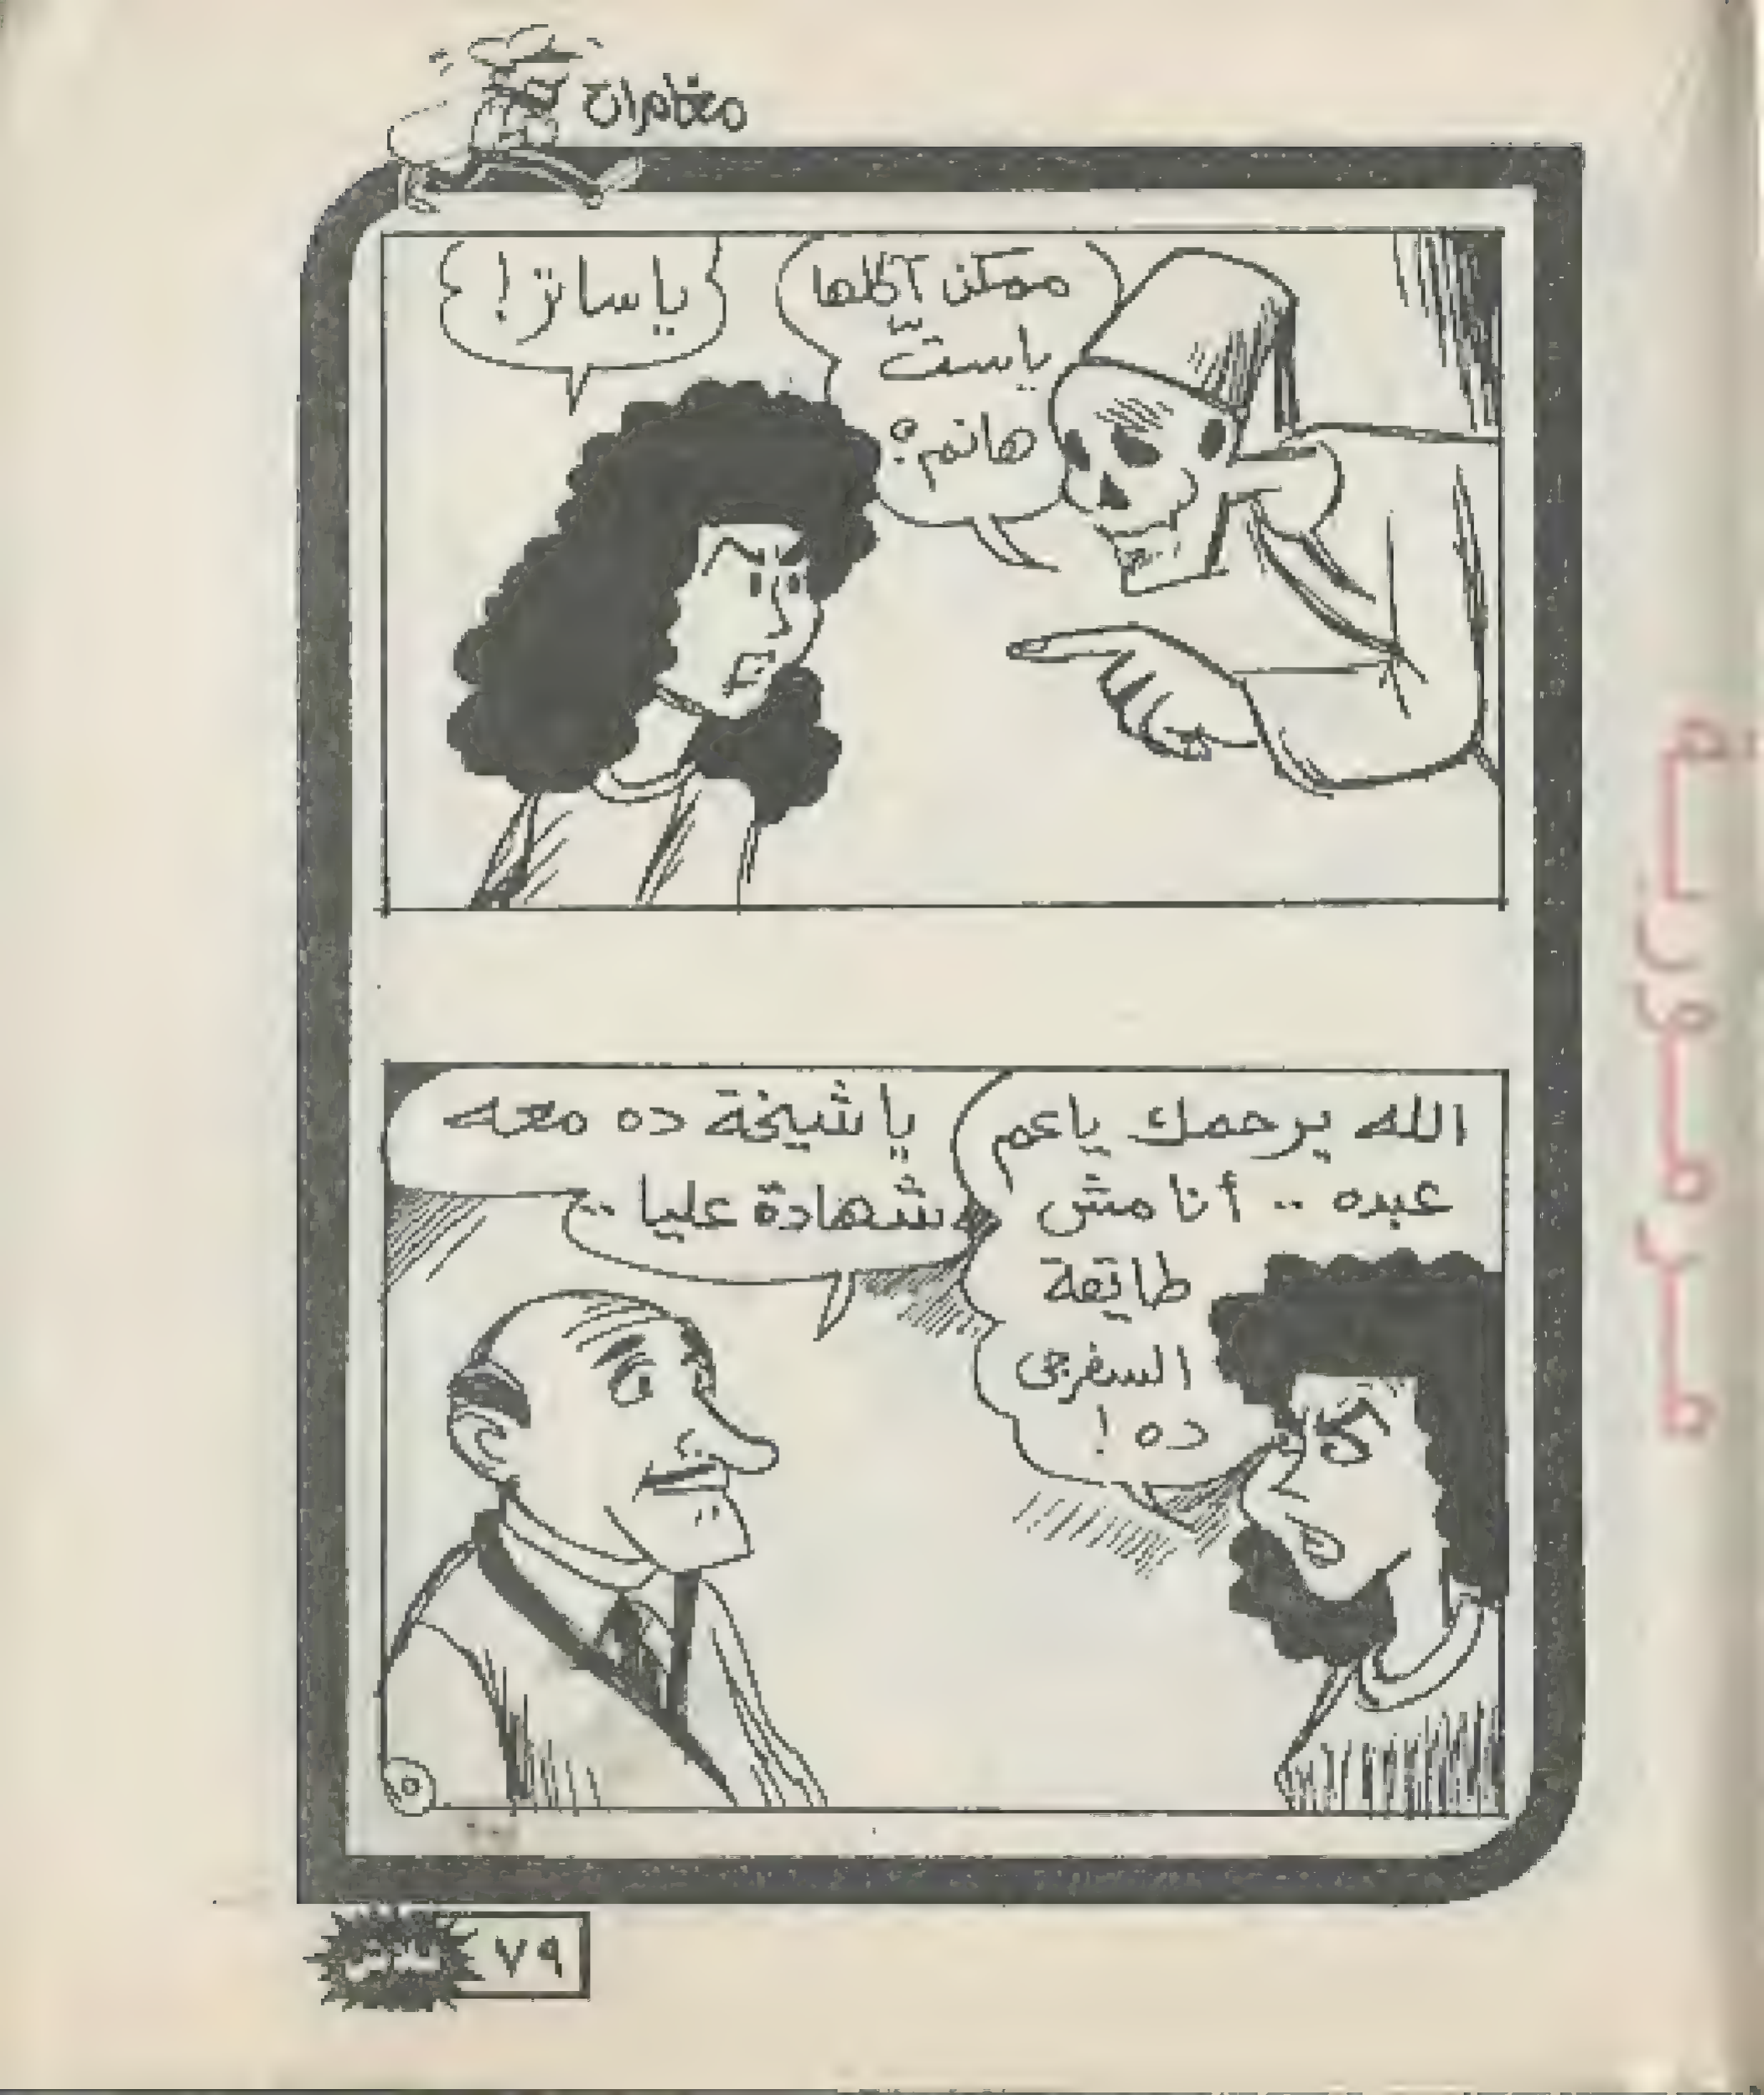 مغامرات
ممكن آكلها
ياست
هانم؟
ياساتر!
الله يرحمك ياعم
عبده .. أنا مش
طايقة
السفرجى
ده !
ياشيخة ده معه
شهادة عليا ..
٥
٧٩
فلاش